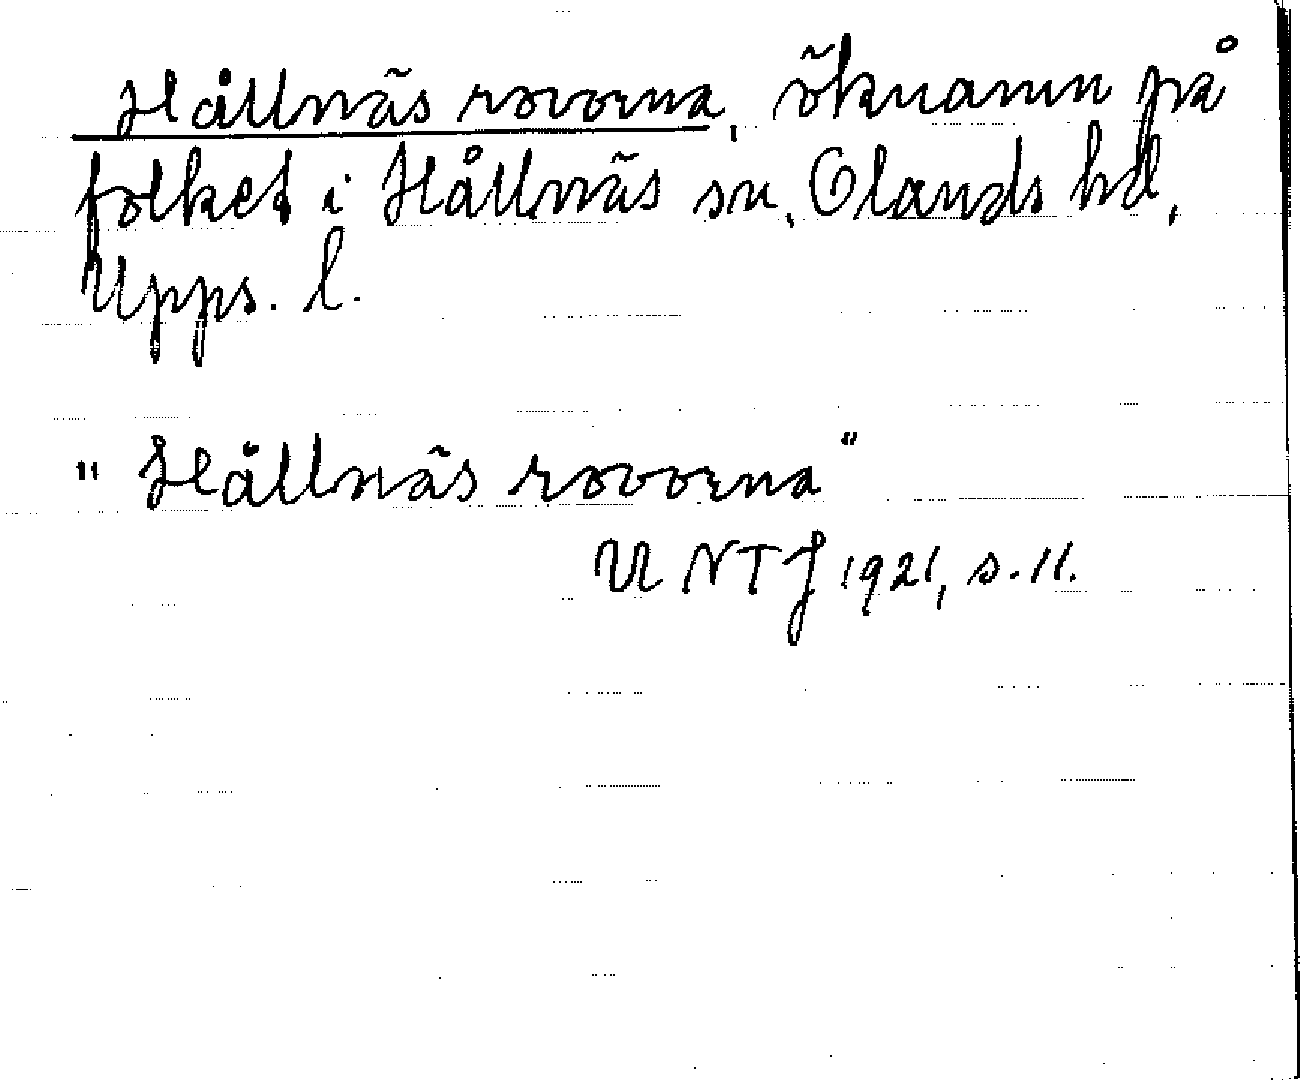 Hållnäs rovorna, öknamn på
folket i Hållnäs sn, Olands hd,
Upps. l.
" Hållnäs rovorna "
UNTJ 1921, s. 11.